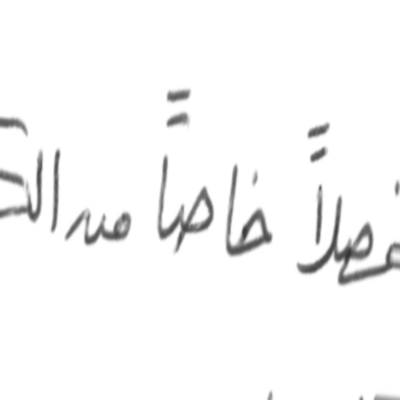 فصلاً خاصاً من